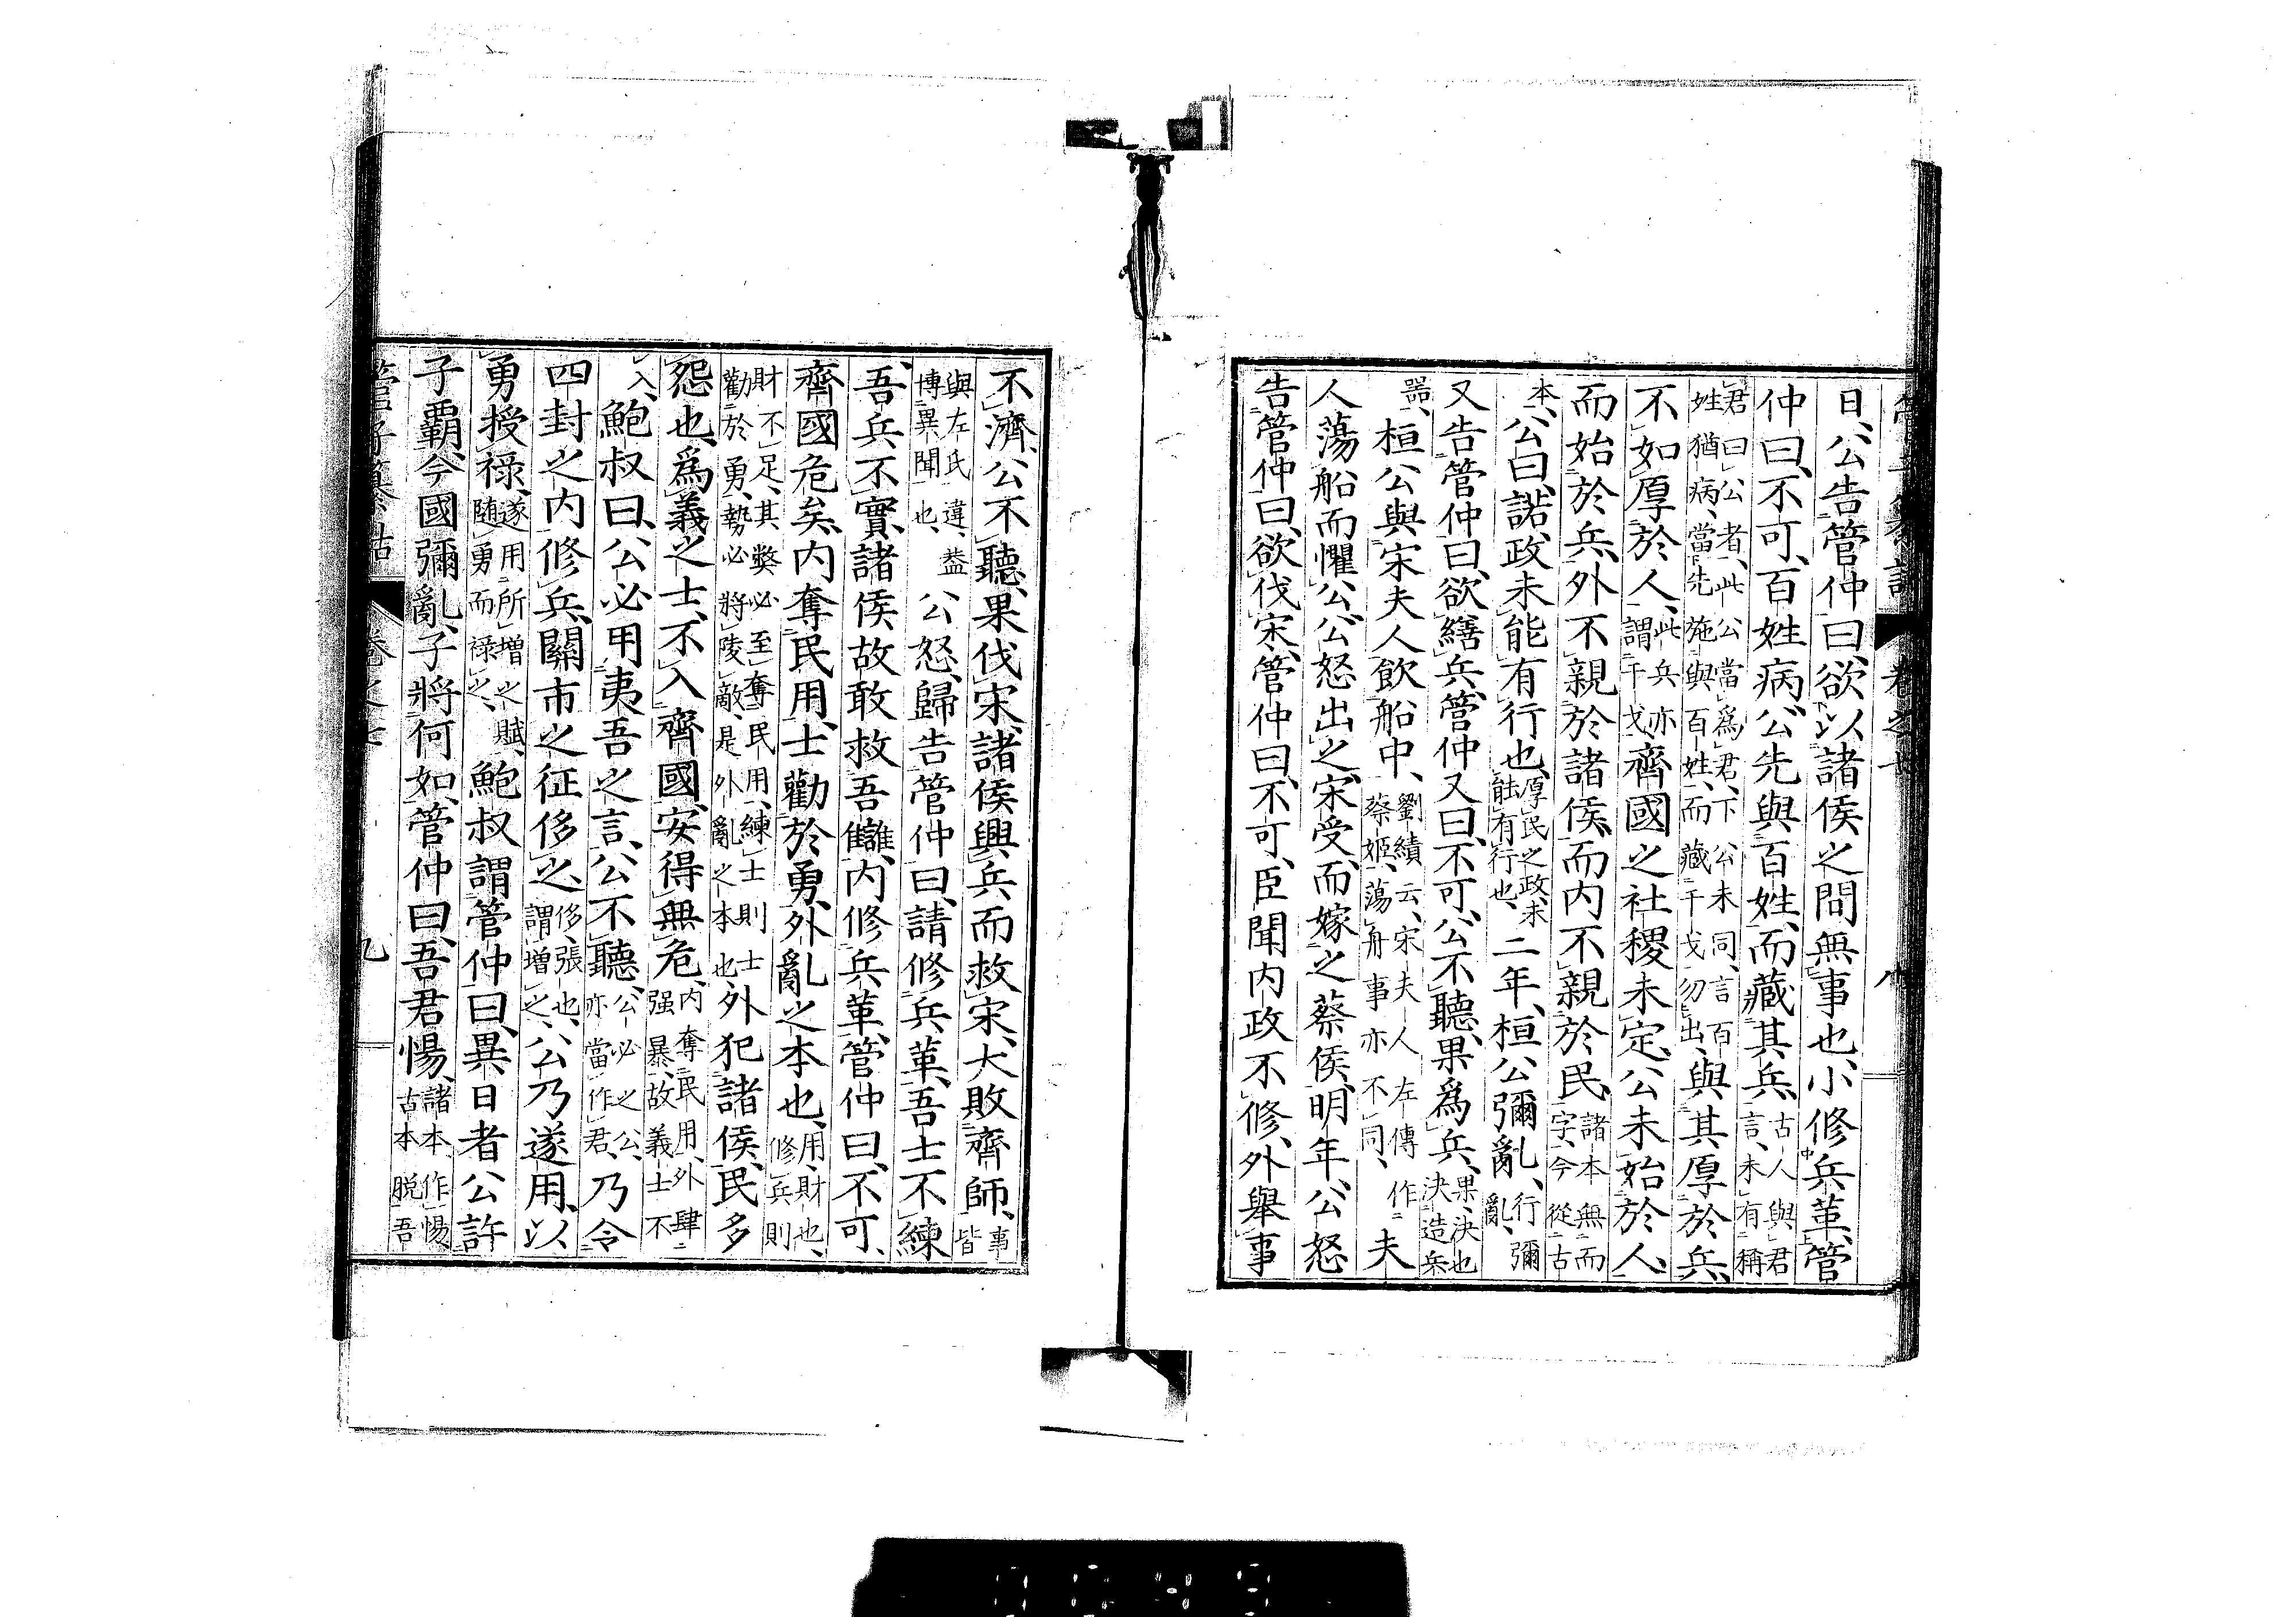 管子纂詁 卷之七 八
日、公告管仲曰、欲以諸侯之間無事也、小修兵革、管
仲曰、不可、百姓病、公先與百姓、而藏其兵、古人與君言、未有稱
君曰公者、此公當爲君、下公未同、言百姓猶病、當先施與百姓、而藏干戈勿出、與其厚於兵、
不如厚於人、此兵亦謂干戈、齊國之社稷未定、公未始於人、
而始於兵、外不親於諸侯、而内不親於民、諸本無而字、今從古
本、公曰、諾、政未能有行也、厚民之政、未能有行也、二年、桓公彌亂、行彌亂、
又告管仲曰、欲繕兵、管仲又曰、不可、公不聽、果爲兵、果、決也、決造兵
噐、桓公與宋夫人飲船中、劉績云、宋夫人左傳作蔡姬、蕩舟事亦不同、夫
人蕩船而懼公、公怒出之、宋受、而嫁之蔡侯、明年、公怒
告管仲曰、欲伐宋、管仲曰、不可、臣聞内政不修、外舉事
不濟、公不聽、果伐宋、諸侯興兵而救宋、大敗齊師、事皆
與左氏違、蓋博異聞也、公怒、歸告管仲曰、請修兵革、吾士不練
吾兵不實、諸侯故敢救吾讎、内修兵革、管仲曰、不可、
齊國危矣、内奪民用、士勸於勇、外亂之本也、用、財也、修兵則
財不足、其弊必至奪民用、練士則士勸於勇、勢必將陵敵、是外亂之本也、外犯諸侯、民多
怨也、爲義之士、不入齊國、安得無危、内奪民用、外肆強暴、故義士不
入、鮑叔曰、公必用夷吾之言、公不聽、公必之公、亦當作君、乃令
四封之内修兵、關市之征侈之、侈、張也、謂增之、公乃遂用、以
勇授祿、遂用所增之賦、随勇而祿之、鮑叔謂管仲曰、異日者公許
子霸、今國彌亂、子將何如、管仲曰、吾君惕、諸本作惕、古本脱吾
管子纂詁 卷之七 九